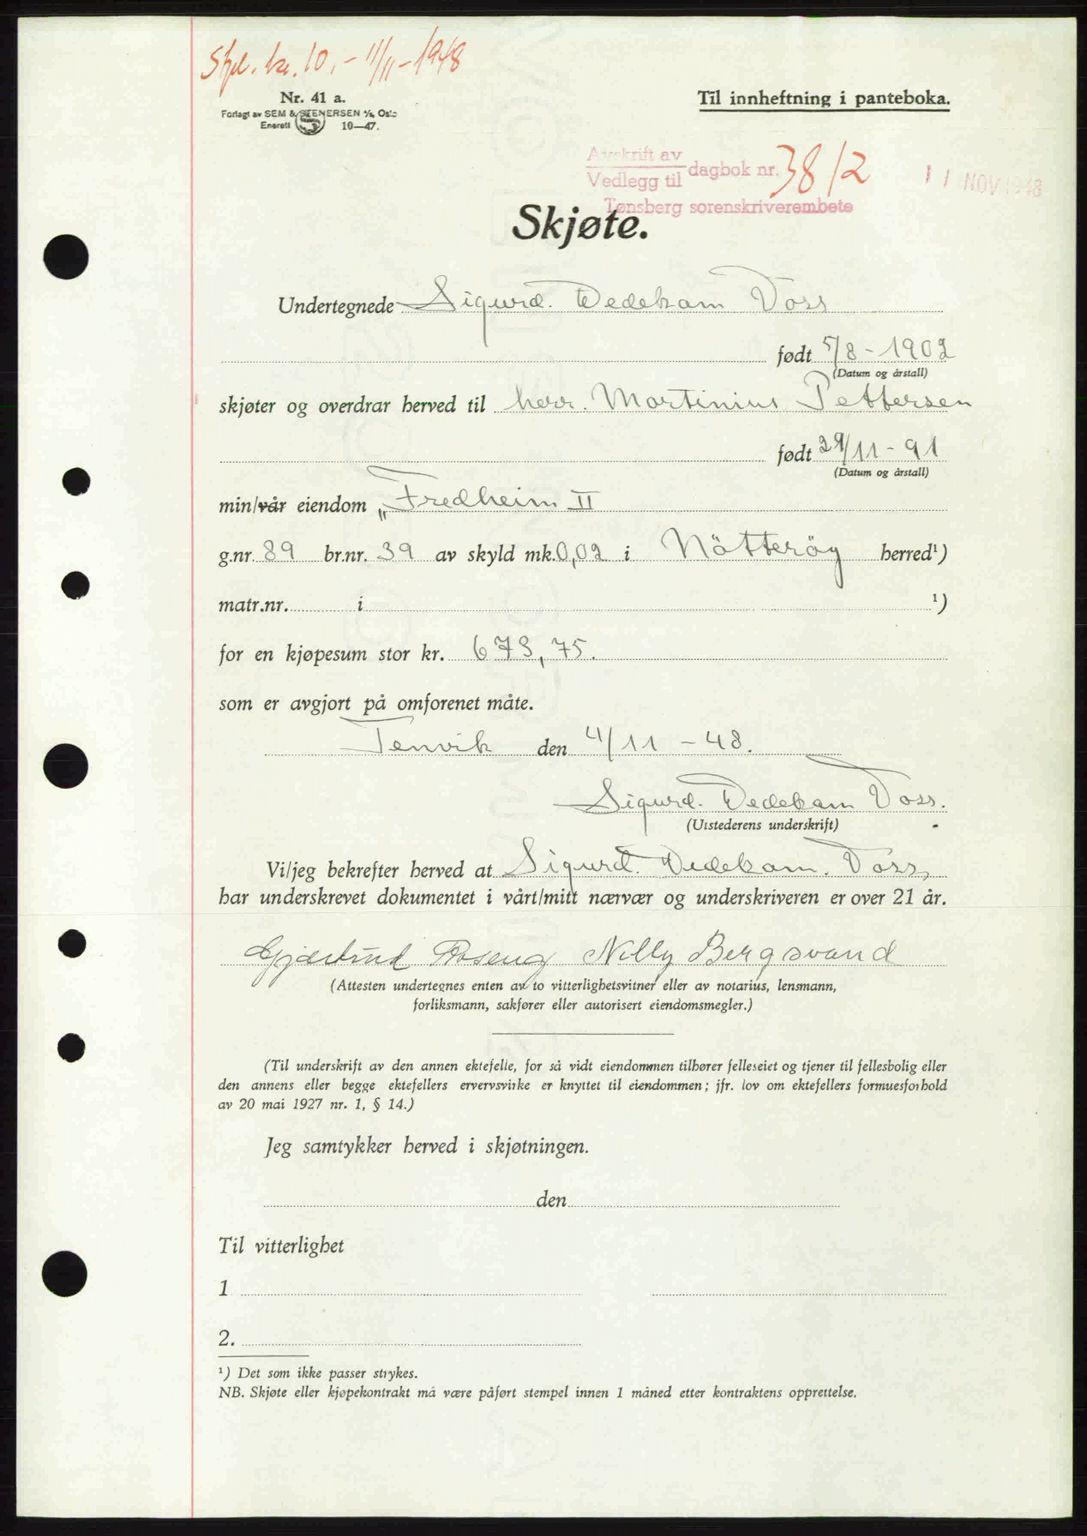 Stpl. kr. 10,- 11/11-1948
Nr. 41 a.
Forlagt av SEM & STENERSEN A/S, Oslo
Enerett 10—47.
Til innheftning i panteboka.
Avskrift av
Vedlegg til dagbok nr. 3812
11 NOV 1948
Tønsberg sorenskriverembete
Skjøte.
Undertegnede Sigurd. Dedekam Voss
født 5/8-1902
(Datum og årstall)
skjøter og overdrar herved til herr. Martinius Pettersen
født 29/11-91
(Datum og årstall)
min/vår eiendom „Fredheim II
g.nr. 89 br.nr. 39 av skyld mk. 0,02 i Nötteröy herred¹)
matr.nr. i ¹)
for en kjøpesum stor kr. 673,75.
som er avgjort på omforenet måte.
Tenvik den 4/11-48.
Sigurd. Dedekam Voss.
(Utstederens underskrift)
Vi/jeg bekrefter herved at Sigurd. Dedekam. Voss,
har underskrevet dokumentet i vårt/mitt nærvær og underskriveren er over 21 år.
Gjærtrud Roseng Nilly Bergsvand
(Attesten undertegnes enten av to vitterlighetsvitner eller av notarius, lensmann,
forliksmann, sakfører eller autorisert eiendomsmegler.)
(Til underskrift av den annen ektefelle, for så vidt eiendommen tilhører felleseiet og tjener til fellesbolig eller
den annens eller begge ektefellers ervervsvirke er knyttet til eiendommen; jfr. lov om ektefellers formuesforhold
av 20 mai 1927 nr. 1, § 14.)
Jeg samtykker herved i skjøtningen.
den
Til vitterlighet
1
2.
¹) Det som ikke passer strykes.
NB. Skjøte eller kjøpekontrakt må være påført stempel innen 1 måned etter kontraktens opprettelse.